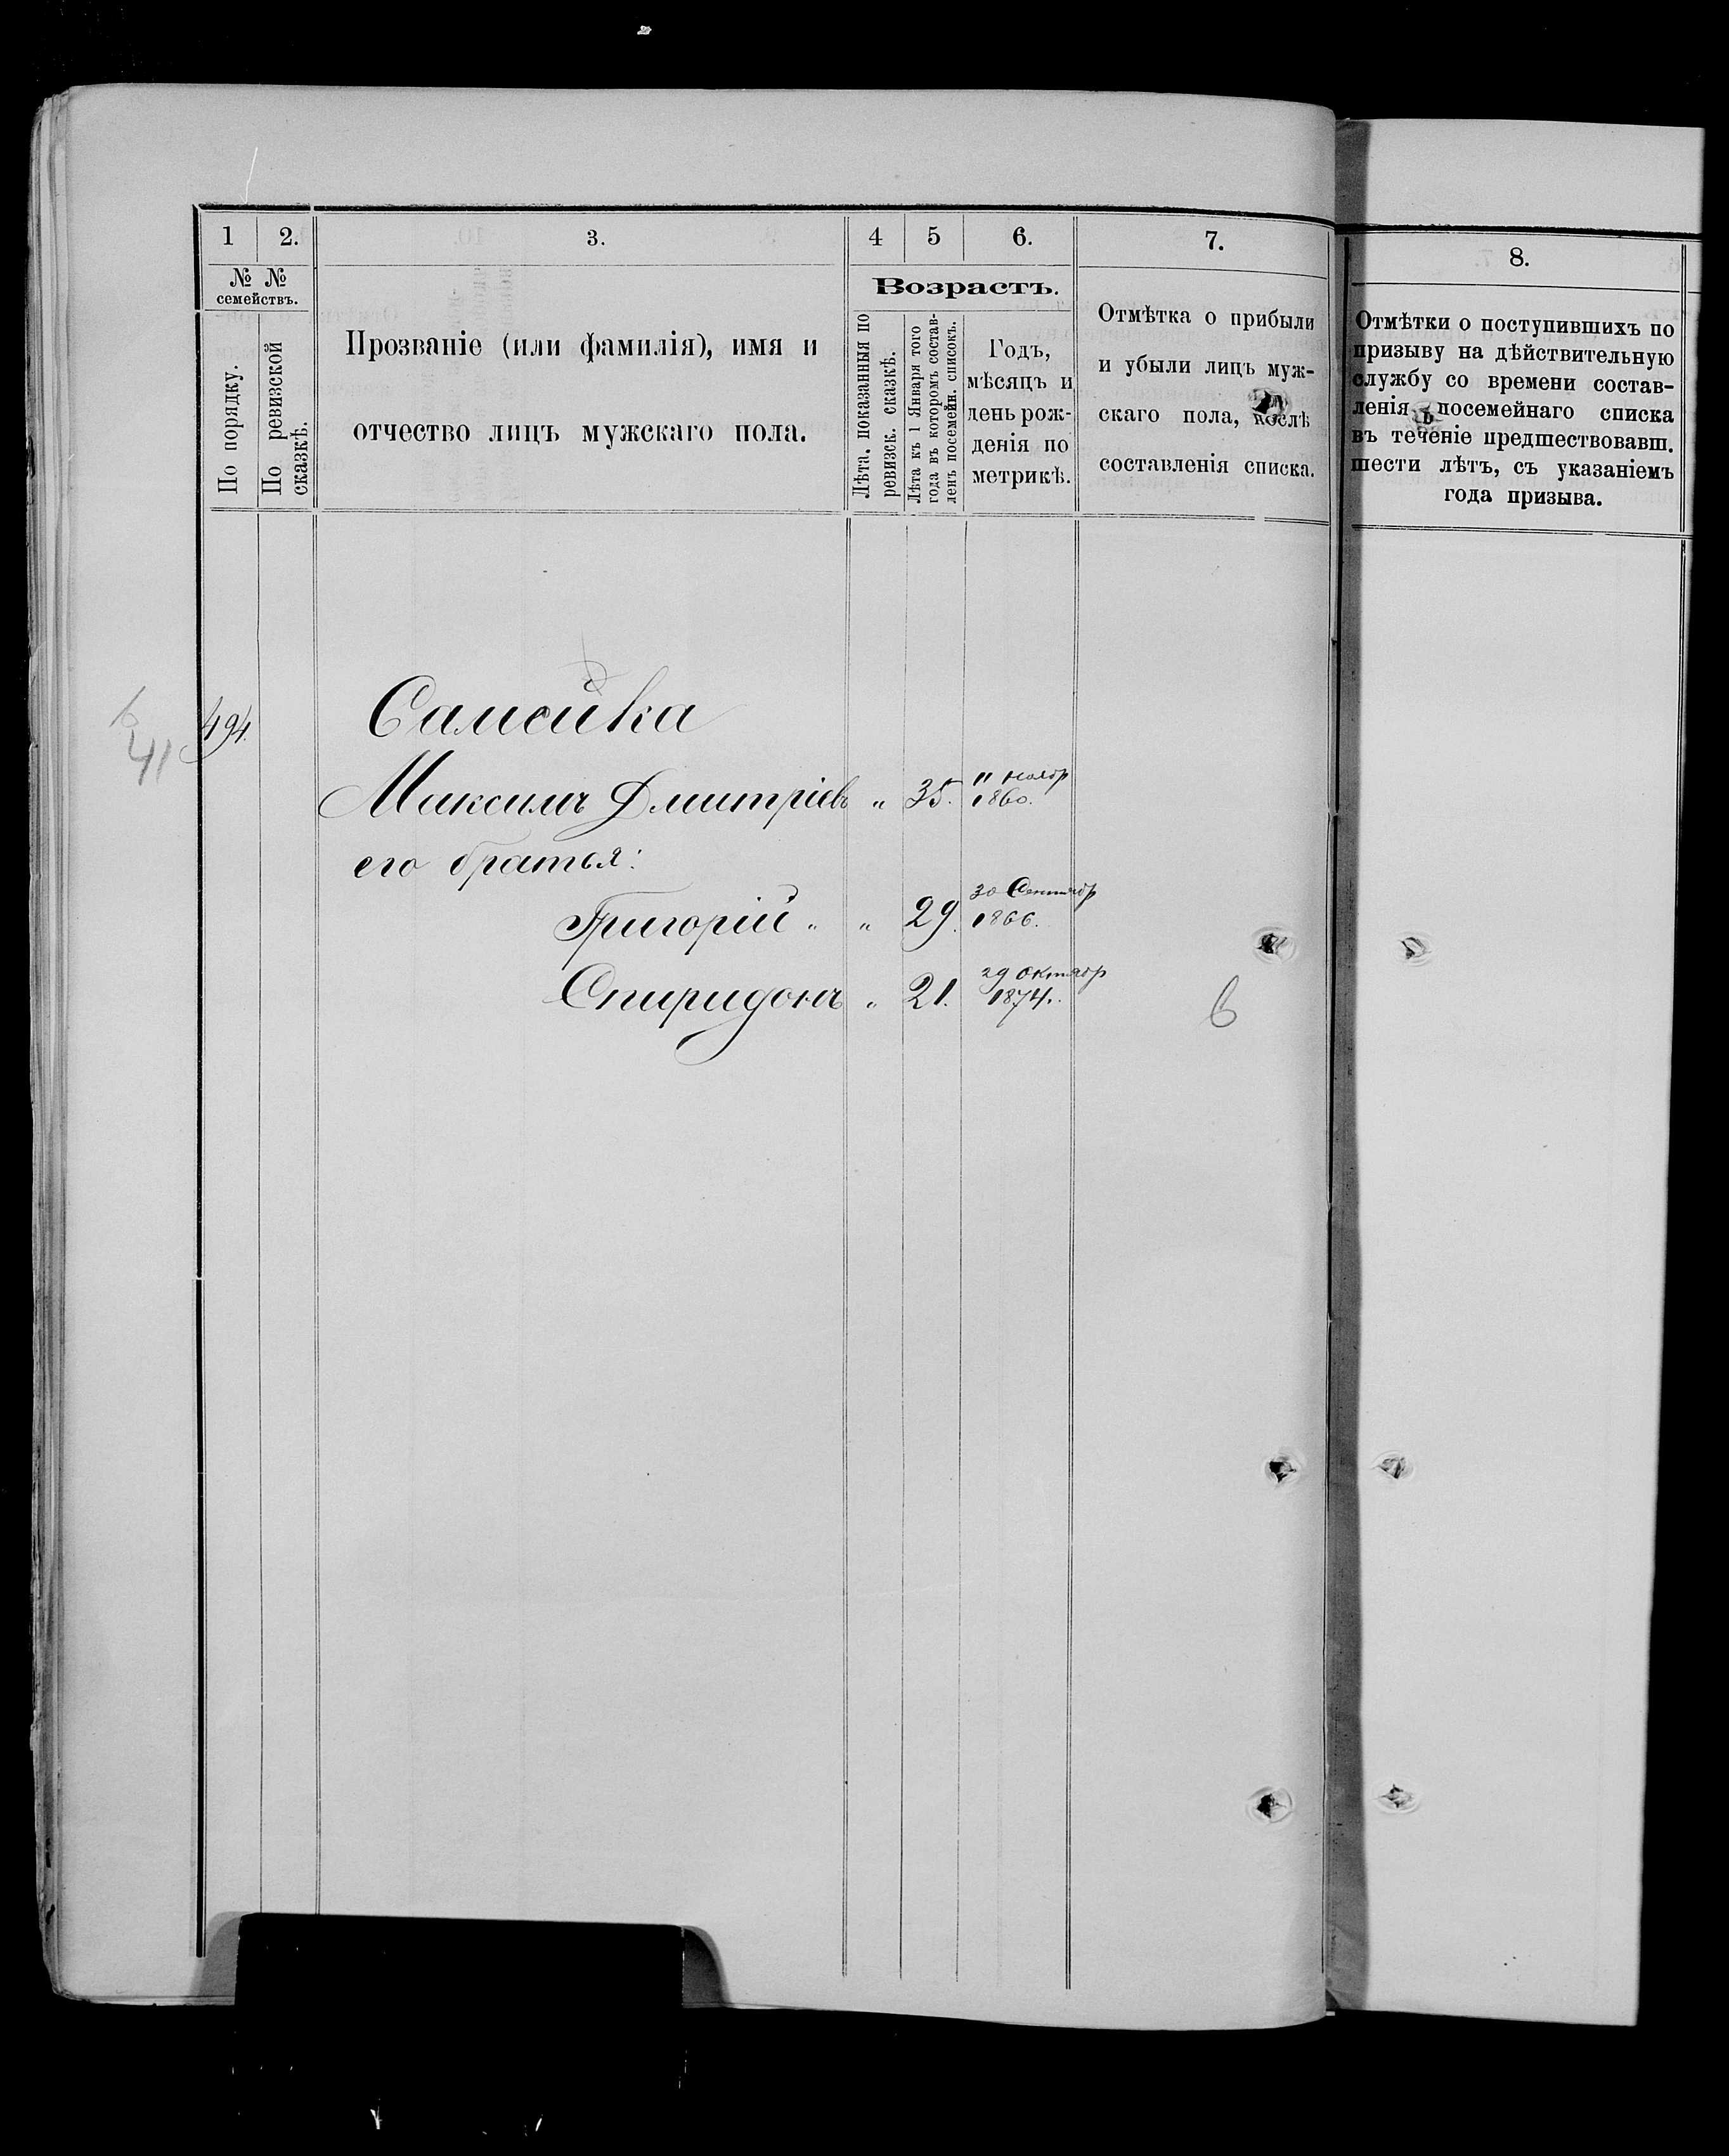 1 2. 3. 4 5 6. 7. 8.
№ №
семействъ.
По порядку.
По ревизской
сказкѣ.
Прозваніе (или фамилія), имя и
отчество лицъ мужскаго пола.
Возрастъ.
Лѣта, показанныя по
ревизск. сказкѣ.
Лѣта къ 1 Января того
года въ которомъ состав-
ленъ посемейн. списокъ.
Годъ,
мѣсяцъ и
день рож-
денія по
метрикѣ.
Отмѣтка о прибыли
и убыли лицъ муж-
скаго пола, послѣ
составленія списка.
Отмѣтки о поступившихъ по
призыву на дѣйствительную
службу со времени состав-
ленія посемейнаго списка
въ теченіе предшествовавш.
шести лѣтъ, съ указаніемъ
года призыва.
494. Самойка
41
Максимъ Дмитріевъ " 35. 11 ноябр
1860.
его братья:
Григорій " " 29. 30 Сентябр
1866.
Спиридонъ " 21. 29 Октябр
1874.
6